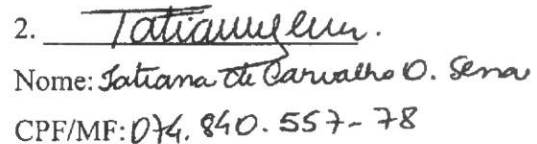 2.
Nome: Tatiana de Carvalho O. Sena
CPF/MF: 074.840.557-78